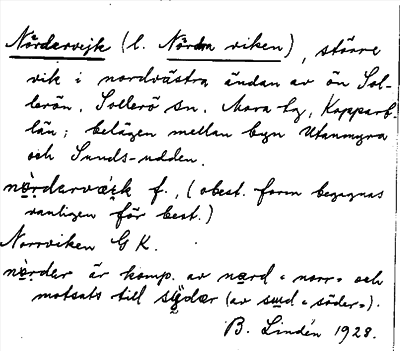 Nördervejk (l. Nördra viken), större
vik i nordvästra ändan av ön Sol-
lerön, Sollerö sn. Mora tg, Kopparb.
län; belägen mellan byn Utanmyra
och Sunds-udden.
nö̀rdervǽik f., (obest. form begagnas
vanligen för best.)
Norrviken G K.
nö̀rder är komp. av nord "norr" och
motsats till sýder (av sud "söder").
B. Lindén 1928.